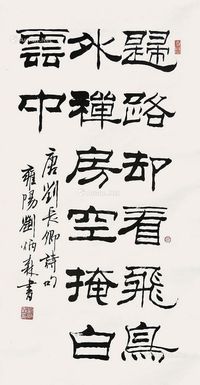 歸路却看飛鳥
外禪房空掩白
雲中
唐劉長卿詩句
雍陽劉炳森書